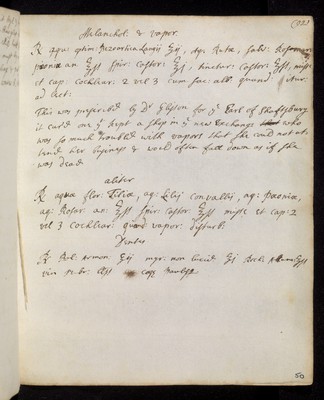 (021
Melanchol: & vapor
℞ aqu: optim: Bezoartica Langij ℥iij, aq: Rutæ, salv: Rosmar:
pæoniæ an ℥jss spir: castor: ℥ss, tinctur: castor: ℥ss, misce
et cap: cochlear: 2 vel 3 cum sac: alb: quand
ad lect:
This was prescrib'd by Dr Glyson for ye Earl of Shaftsbury
it cur'd one yt kept a shop in ye new exchange who
was so much troubl'd with vapors that she could not at-
tend her busines & would often fall down as if she
was dead
aliter
℞ aqua flor: Tiliæ, aq: Lilij convallij, aq: Pæoniæ,
aq: an: ℥jss spir: castor: ℥ss misce et cap: 2
vel 3 cochlear: quand vapor: disturb:
Dentes
℞ Bol: Armon: ʒij myr: non ʒj Roch:
vin rubr: capp
50